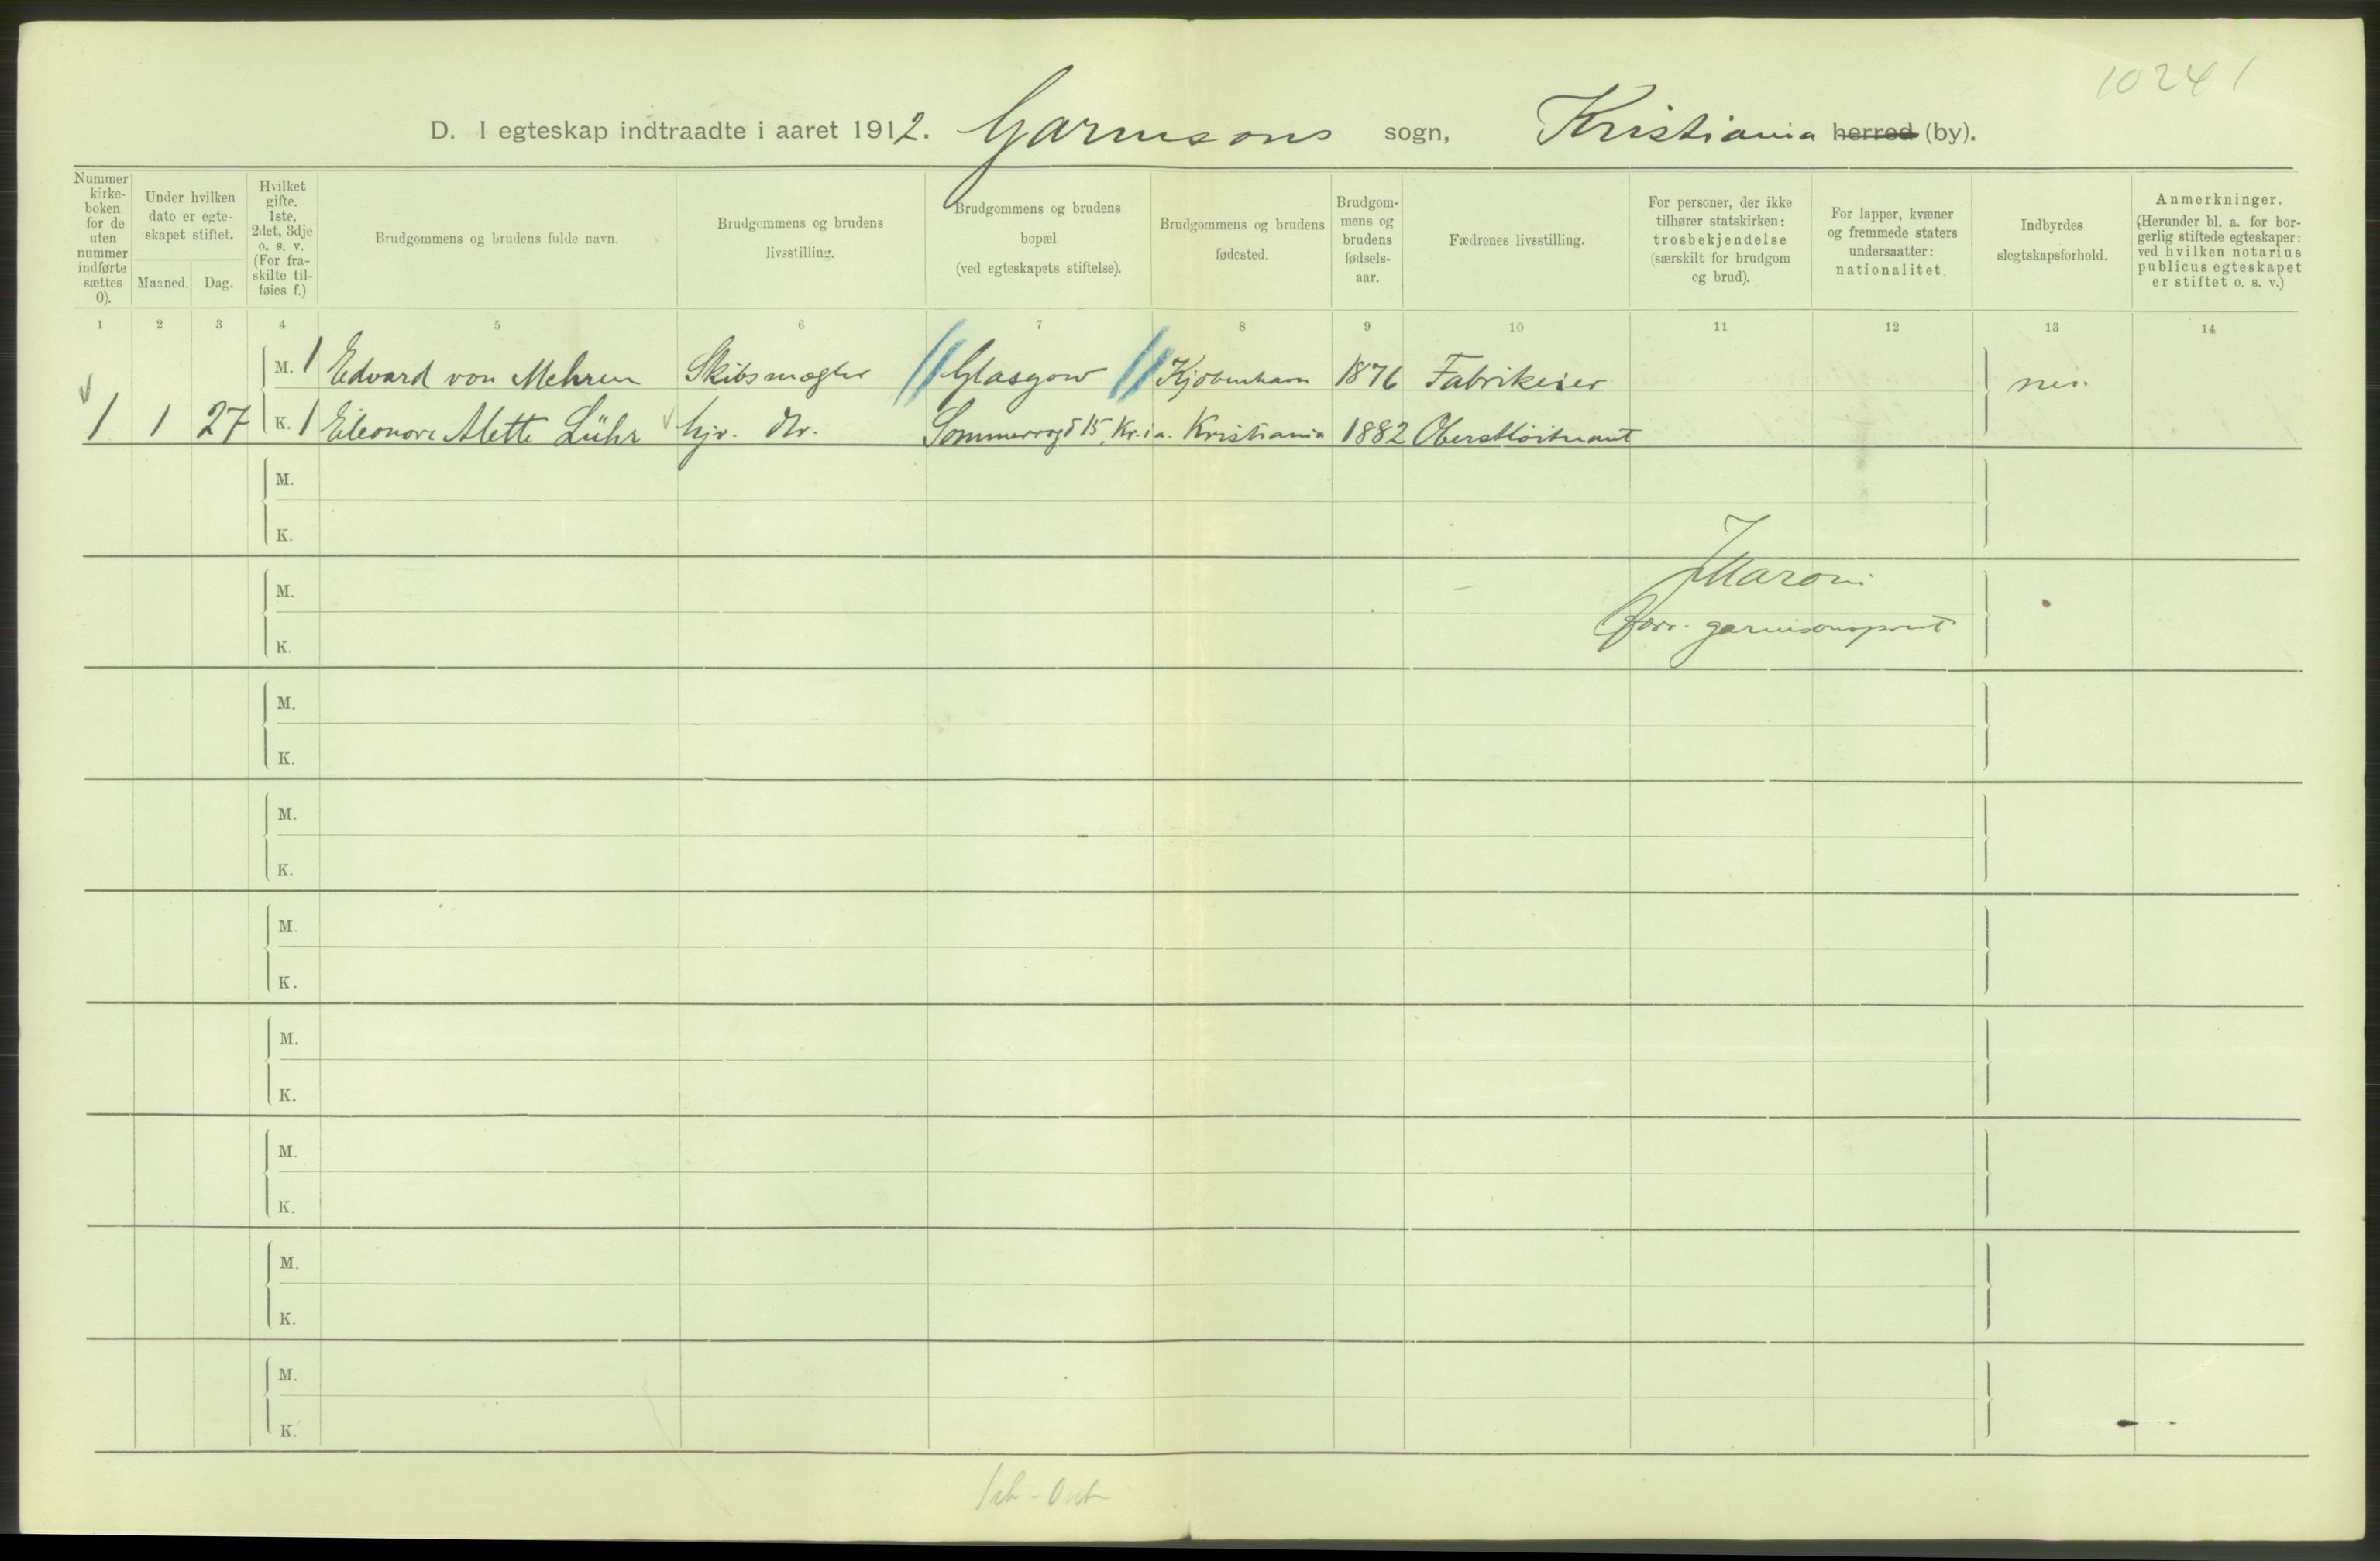 10241
D. I egteskap indtraadte i aaret 1912. Garnisons sogn, Kristiania herred (by).
Nummer kirke- boken for de uten nummer indførte sættes 0).
Under hvilken dato er egte- skapet stiftet.
Maaned. Dag.
Hvilket gifte. 1ste, 2det, 3dje o. s. v. (For fra- skilte til- føies f.)
Brudgommens og brudens fulde navn.
Brudgommens og brudens livsstilling.
Brudgommens og brudens bopæl (ved egteskapets stiftelse).
Brudgommens og brudens fødested.
Brudgom- mens og brudens fødsels- aar.
Fædrenes livsstilling.
For personer, der ikke tilhører statskirken: trosbekjendelse (særskilt for brudgom og brud).
For lapper, kvæner og fremmede staters undersaatter: nationalitet.
Indbyrdes slegtskapsforhold.
Anmerkninger. (Herunder bl. a. for bor- gerlig stiftede egteskaper: ved hvilken notarius publicus egteskapet er stiftet o. s. v.)
1 2 3 4 5 6 7 8 9 10 11 12 13 14
M. 1 Edvard von Mehren Skibsmægler Glasgow Kjöbenhavn 1876 Fabrikeier nei.
1 1 27 K. 1 Eleonore Alette Lühr hjv. dtr. Sommerrogt 15, Kr.ia. Kristiania 1882 Oberstløitnant
M.
K.
M. JMaroni
K. garnisonsprest
M.
K.
M.
K.
M.
K.
M.
K.
M.
K.
M.
K.
M.
K.